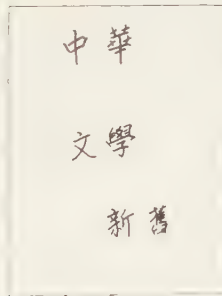 中華
文學
新舊